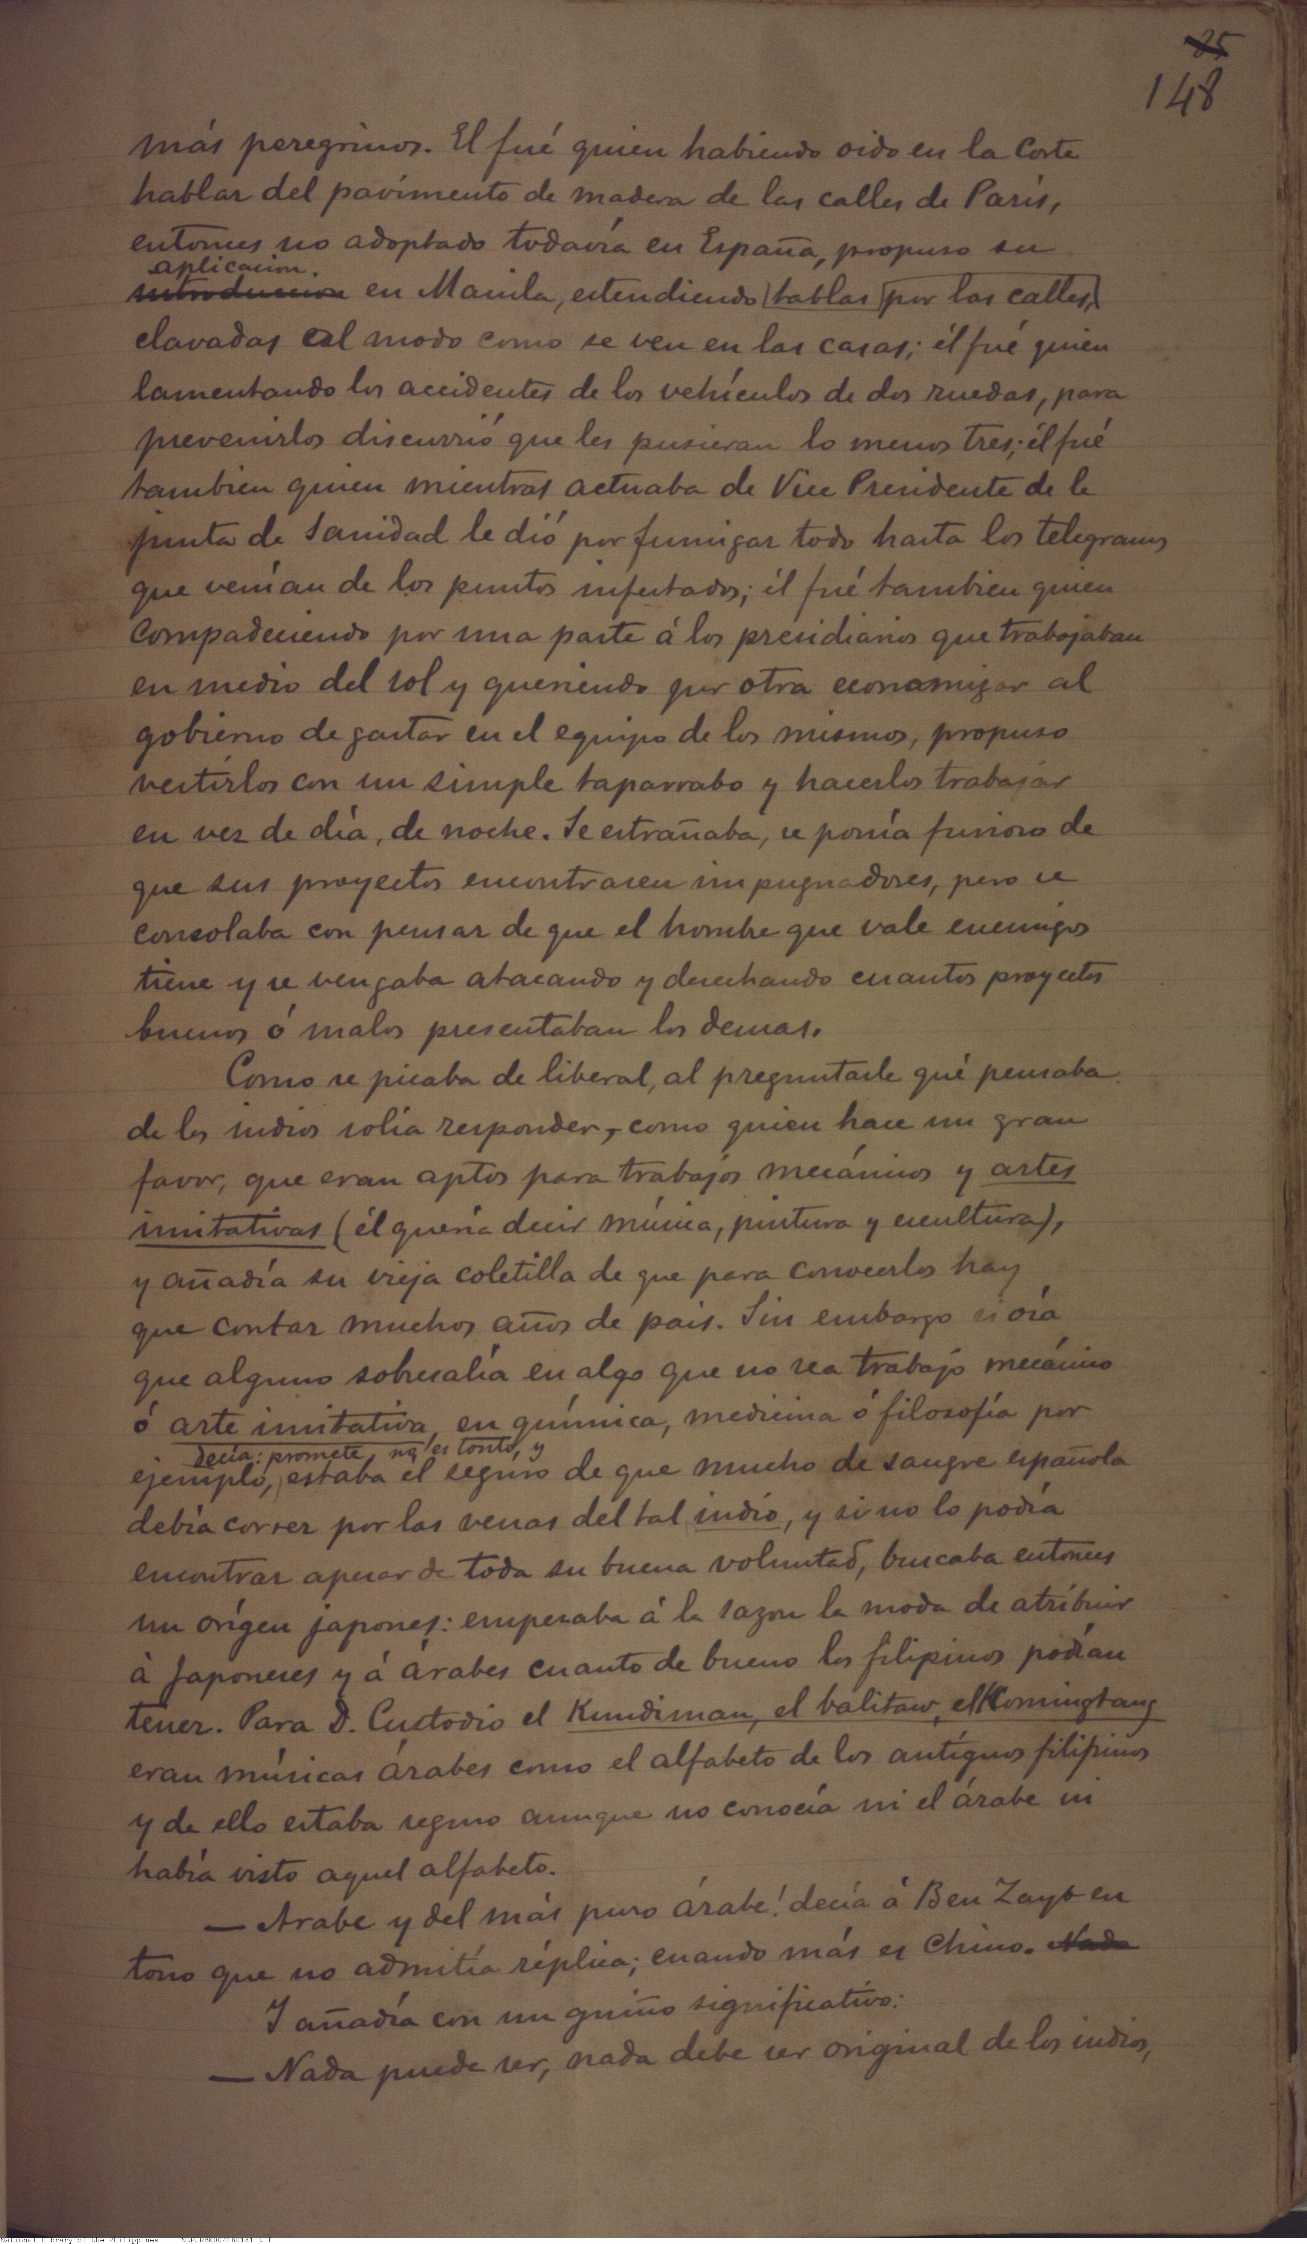 25
148
más peregrinos. El fué quien habiendo oido en la Corte
hablar del pavimento de madera de las calles de París,
entonces no adoptado todavía en España, propuso su
aplicacion.
introduccion en Manila, estendiendo tablas por las calles,
clavadas al modo como se ven en las casas; él fué quien
lamentando los accidentes de los vehículos de dos ruedas, para
prevenirlos discurrió que les pusieran lo menos tres; él fué
tambien quien mientras actuaba de Vice Presidente de la
junta de Sanidad le dió por fumigar todo hasta los telegramas
que venían de los puntos infectados; él fué tambien quien
compadeciendo por una parte á los presidiarios que trabajaban
en medio del sol y queriendo por otra economizar al
gobierno de gastar en el equipo de los mismos, propuso
vestirlos con un simple taparrabo y hacerlos trabajar
en vez de día, de noche. Se estrañaba, se ponía furioso de
que sus proyectos encontrasen impugnadores, pero se
consolaba con pensar de que el hombre que vale enemigos
tiene y se vengaba atacando y desechando cuantos proyectos
buenos ó malos presentaban los demas.
Como se picaba de liberal, al preguntarle qué pensaba
de los indios solía responder, como quien hace un gran
favor, que eran aptos para trabajos mecánicos y artes
imitativas (él quería decir música, pintura y escultura),
y añadía su vieja coletilla de que para conocerlos hay
que contar muchos años de pais. Sin embargo si oía
que alguno sobresalía en algo que no sea trabajo mecánico
ó arte imitativa, en química, medicina ó filosofía por
decía: promete, no es tonto, y
ejemplo, estaba él seguro de que mucho de sangre española
debía correr por las venas del tal indio, y si no lo podía
encontrar apesar de toda su buena voluntad, buscaba entonces
un orígen japones: empezaba á la sazon la moda de atribuir
á Japoneses y á árabes cuanto de bueno los filipinos podían
tener. Para D. Custodio el Kundiman, el balitaw, el Komingtang
eran músicas árabes como el alfabeto de los antíguos filipinos
y de ello estaba seguro aunque no conocía ni el árabe ni
había visto aquel alfabeto.
— Arabe y del más puro árabe! decía á Ben Zayb en
tono que no admitía réplica; cuando más es Chino. Nada
Y añadía con un guiño significativo:
— Nada puede ser, nada debe ser original de los indios,